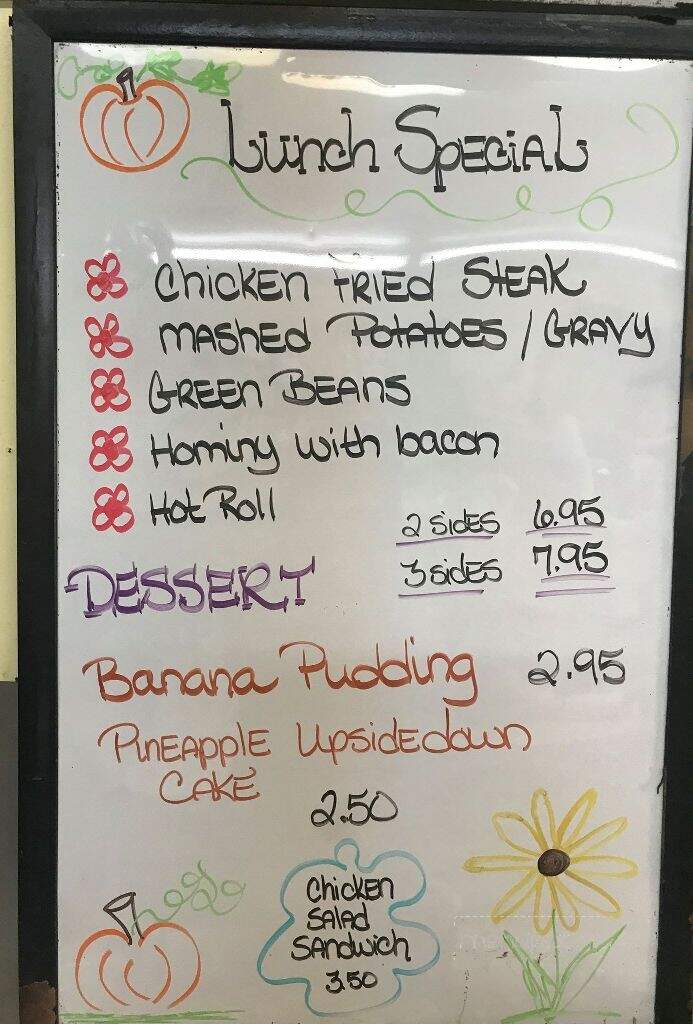 Lunch Special
Chicken Fried Steak
Mashed Potatoes / Gravy
Green Beans
Hominy with bacon
Hot Roll
2 sides 6.95
3 sides 7.95
DESSERT
Banana Pudding 2.95
Pineapple Upsidedown
Cake
2.50
Chicken
Salad
Sandwich
3.50